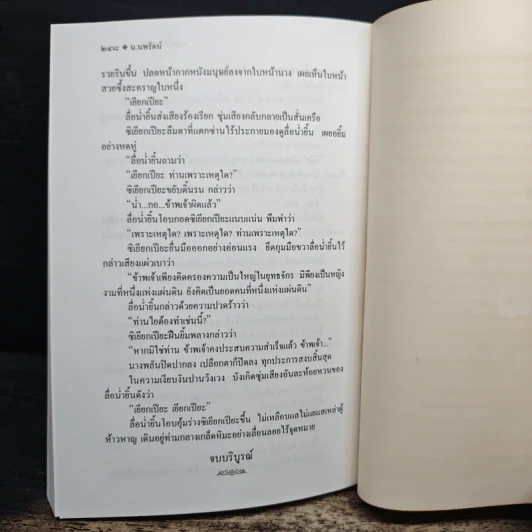 ๒๔๘ ◆ น.นพรัตน์
รวยรินขึ้น ปลดหน้ากากหนังมนุษย์ลงจากใบหน้านาง เผยเห็นใบหน้า
สวยซึ้งสะคราญใบหนึ่ง
"เยียกเปียะ"
ลื่อน่ำยิ้นส่งเสียงร้องเรียก ซุ่มเสียงกลับกลายเป็นสั่นเครือ
ซิเยียกเปียะลืมตาที่แตกซ่านไร้ประกายมองดูลื่อน่ำยิ้น เผยอยิ้ม
อย่างหดหู่
ลื่อน่ำยิ้นถามว่า
"เยียกเปียะ ท่านเพราะเหตุใด?"
ซิเยียกเปียะขยับดิ้นรน กล่าวว่า
"น่ำ...กอ...ข้าพเจ้าผิดแล้ว"
ลื่อน่ำยิ้นโอบกอดซิเยียกเปียะแนบแน่น พึมพำว่า
"เพราะเหตุใด? เพราะเหตุใด? ท่านเพราะเหตุใด?"
ซิเยียกเปียะยื่นมือออกอย่างอ่อนแรง ยึดกุมมือขวาลื่อน่ำยิ้นไว้
กล่าวเสียงแผ่วเบาว่า
"ข้าพเจ้าเพียงคิดครองความเป็นใหญ่ในยุทธจักร มิพึงเป็นหญิง
งามที่หนึ่งแห่งแผ่นดิน ยังคิดเป็นยอดคนที่หนึ่งแห่งแผ่นดิน"
ลื่อน่ำยิ้นกล่าวด้วยความปวดร้าวว่า
"ท่านใยต้องทำเช่นนี้?"
ซิเยียกเปียะฝืนยิ้มพลางกล่าวว่า
"หากมิใช่ท่าน ข้าพเจ้าคงประสบความสำเร็จแล้ว ข้าพเจ้า..."
นางพลันปิดปากลง เปลือกตาก็ปิดลง ทุกประการสงบสิ้นสุด
ในความเงียบงันปานวังเวง บังเกิดซุ่มเสียงอันละห้อยหวนของ
ลื่อน่ำยิ้นดังว่า
"เยียกเปียะ เยียกเปียะ"
ลื่อน่ำยิ้นโอบอุ้มร่างซิเยียกเปียะขึ้น ไม่เหลือบแลไม่แยแสเหล่าผู้
ห้าวหาญ เดินอยู่ท่ามกลางเกล็ดหิมะอย่างเลื่อนลอยไร้จุดหมาย
จบบริบูรณ์